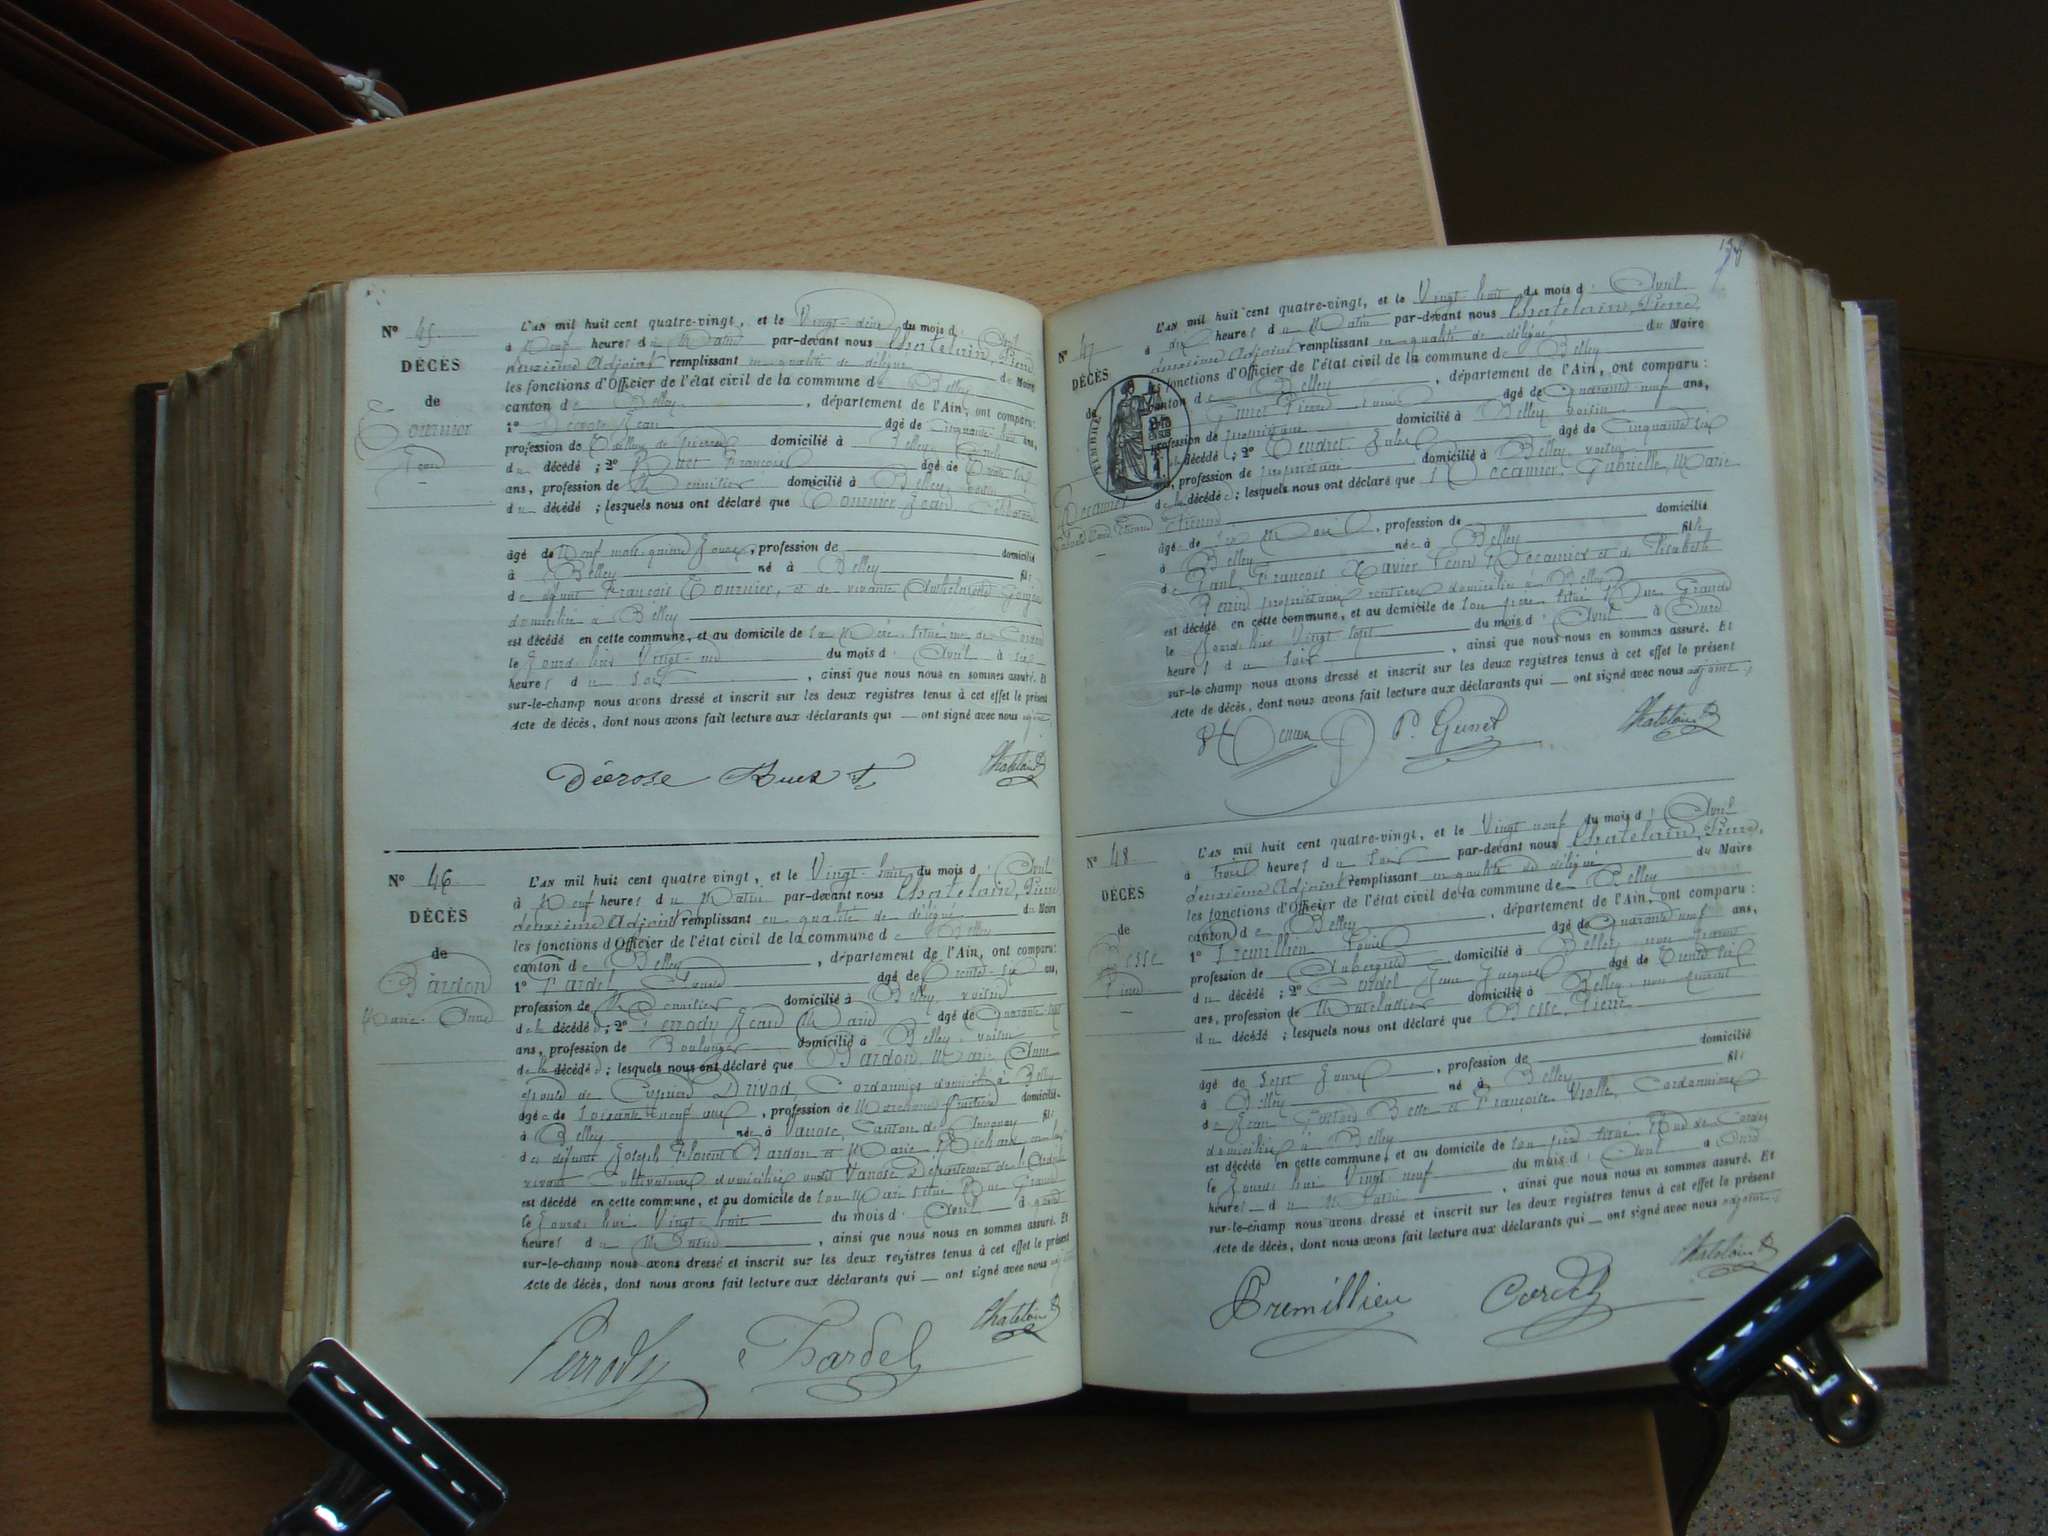 Nº 45
DÉCÈS
de
Tournier
Jean
L'AN mil huit cent quatre-vingt, et le Vingt-deux du mois d' Avril
à Neuf heures du Matin par-devant nous Chatelain, Pierre
deuxième Adjoint remplissant en qualité de délégué du Maire
les fonctions d'Officier de l'état civil de la commune de Belley
canton de Belley, département de l'Ain, ont comparu:
1º Décrose Jean âgé de Cinquante huit ans,
profession de Tailleur de pierres domicilié à Belley,
du décédé; 2º Buet François âgé de Trente
ans, profession de Menuisier domicilié à Belley, voisin
du décédé; lesquels nous ont déclaré que Tournier Jean
âgé de Neuf mois quinze jours, profession de domicilié
à Belley né à Belley fils
de défunt François Tournier, et de vivante Anthelmette
domiciliée à Belley
est décédé en cette commune, et au domicile de sa Mère, situé rue de
le Jourd'hier Vingt-un du mois d' Avril à six
heures du soir, ainsi que nous nous en sommes assuré. Et
sur-le-champ nous avons dressé et inscrit sur les deux registres tenus à cet effet le présent
Acte de décès, dont nous avons fait lecture aux déclarants qui ont signé avec nous adjoint
Décrose Buet f. Chatelain P
Nº 46
DÉCÈS
de
Bardon
Marie-Anne
L'AN mil huit cent quatre vingt, et le Vingt-huit du mois d' Avril
à Neuf heures du Matin par-devant nous Chatelain, Pierre
deuxième Adjoint remplissant en qualité de délégué du Maire
les fonctions d'Officier de l'état civil de la commune de Belley
canton de Belley, département de l'Ain, ont comparu:
1º Tardel, Claude âgé de Trente-six ans,
profession de Menuisier domicilié à Belley, voisin
de la décédée; 2º Perrody Jean Marie âgé de Quarante-sept
ans, profession de Boulanger domicilié à Belley, voisin
de la décédée; lesquels nous ont déclaré que Bardon, Marie Anne
épouse de Cyprien Drivod, Cordonnier domicilié à Belley
âgée de Soixante-neuf ans, profession de Marchande fruitière domiciliée
à Belley née à Vanosc, Canton de Annonay fille
des défunts Joseph Florent Bardon et Marie Michaux en leur
vivant Cultivateurs domiciliés audit Vanosc Département de l'Ardèche
est décédé en cette commune, et au domicile de son Mari situé Rue Grande
le Jourd'hui Vingt-huit du mois d' Avril à quatre
heures du Matin, ainsi que nous nous en sommes assuré. Et
sur-le-champ nous avons dressé et inscrit sur les deux registres tenus à cet effet le présent
Acte de décès, dont nous avons fait lecture aux déclarants qui ont signé avec nous adjoint
Perrody Tardel Chatelain P
158
Nº 47
DÉCÈS
de
Récamier
Gabrielle Marie Etienne
TIMBRE
L'AN mil huit cent quatre-vingt, et le Vingt-huit du mois d' Avril
à dix heures du Matin par-devant nous Chatelain, Pierre
deuxième Adjoint remplissant en qualité de délégué du Maire
les fonctions d'Officier de l'état civil de la commune de Belley
canton de Belley, département de l'Ain, ont comparu:
Gunet Pierre Louis âgé de Quarante neuf ans,
profession de propriétaire domicilié à Belley, voisin
de la décédée; 2º Tendret Jules âgé de Cinquante six
ans, profession de propriétaire domicilié à Belley, voisin
de la décédée; lesquels nous ont déclaré que Récamier Gabrielle Marie
Etienne
âgée de six Mois, profession de domicilié
à Belley née à Belley fille
de Paul François Xavier Henri Récamier et de Elisabeth
Perrin propriétaires rentiers domiciliés à Belley
est décédé en cette commune, et au domicile de son père, situé Rue Grande
le Jourd'hier Vingt sept du mois d' Avril à Onze
heures du soir, ainsi que nous nous en sommes assuré. Et
sur-le-champ nous avons dressé et inscrit sur les deux registres tenus à cet effet le présent
Acte de décès, dont nous avons fait lecture aux déclarants qui ont signé avec nous adjoint
P. Gunet Chatelain P
Nº 48
DÉCÈS
de
Besse
Pierre
L'AN mil huit cent quatre-vingt, et le Vingt neuf du mois d' Avril
à trois heures du Soir par-devant nous Chatelain, Pierre,
deuxième Adjoint remplissant en qualité de délégué du Maire
les fonctions d'Officier de l'état civil de la commune de Belley
canton de Belley, département de l'Ain, ont comparu:
1º Premillieu Louis âgé de Quarante neuf ans,
profession de Aubergiste domicilié à Belley non parent
du décédé; 2º Cordel Jean Jacques âgé de Trente six
ans, profession de Matelassier domicilié à Belley, non parent
du décédé; lesquels nous ont déclaré que Besse, Pierre
âgé de Sept Jours, profession de domicilié
à Belley né à Belley fils
de Jean Besse et Françoise Violle, Cordonniers
domiciliés à Belley
est décédé en cette commune, et au domicile de son père situé, Rue de
le Jourd'hui Vingt neuf du mois d' Avril à Onze
heures du Matin, ainsi que nous nous en sommes assuré. Et
sur-le-champ nous avons dressé et inscrit sur les deux registres tenus à cet effet le présent
Acte de décès, dont nous avons fait lecture aux déclarants qui ont signé avec nous adjoint
Premillieu Cordel Chatelain P